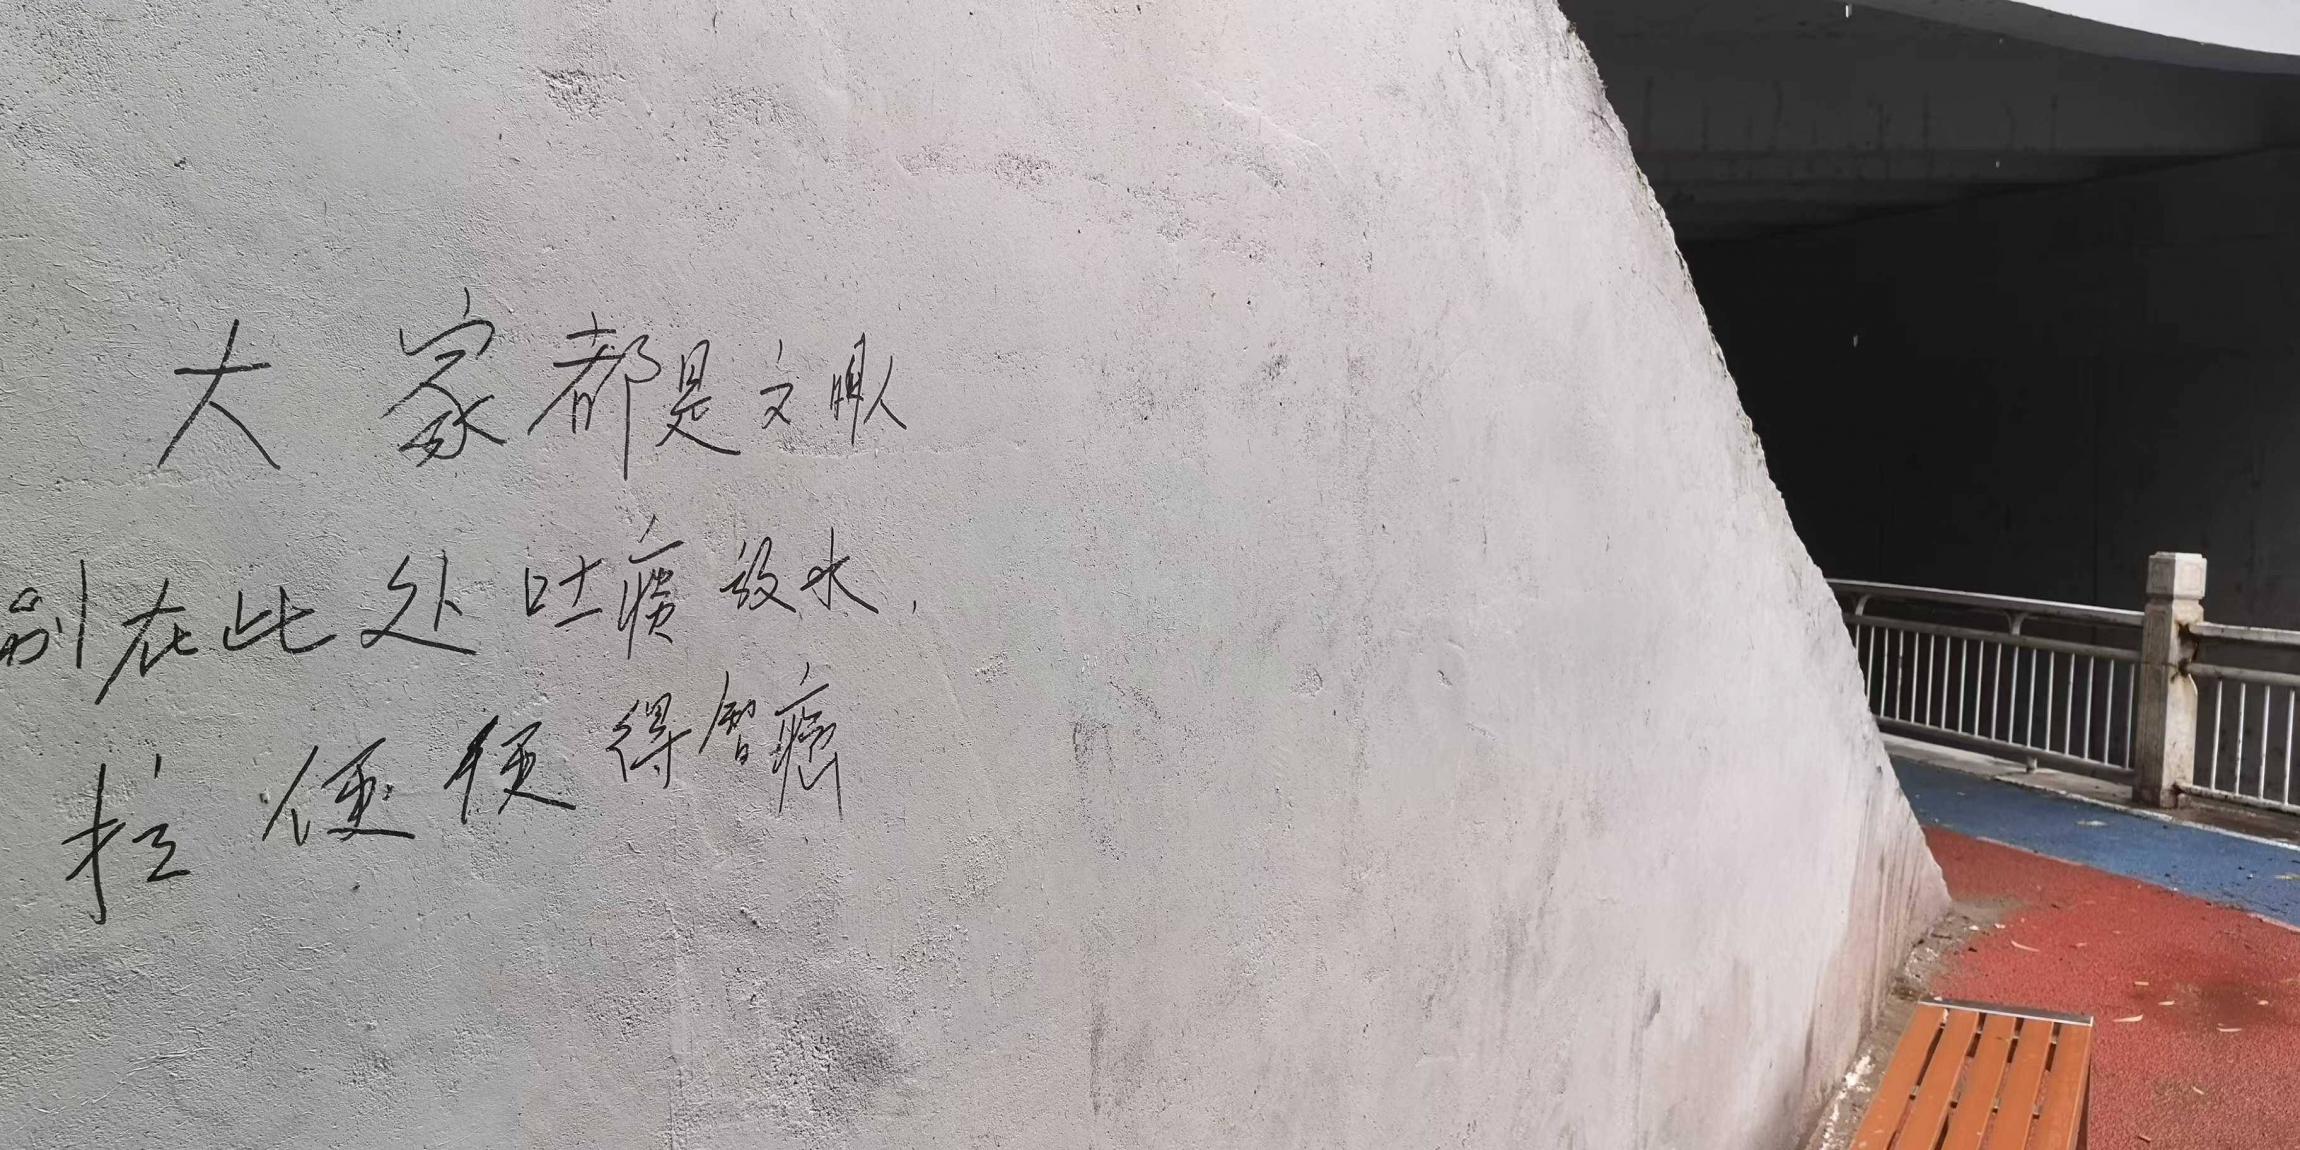 大家都是文明人
别在此处吐痰放水,
拉便便得胃癌